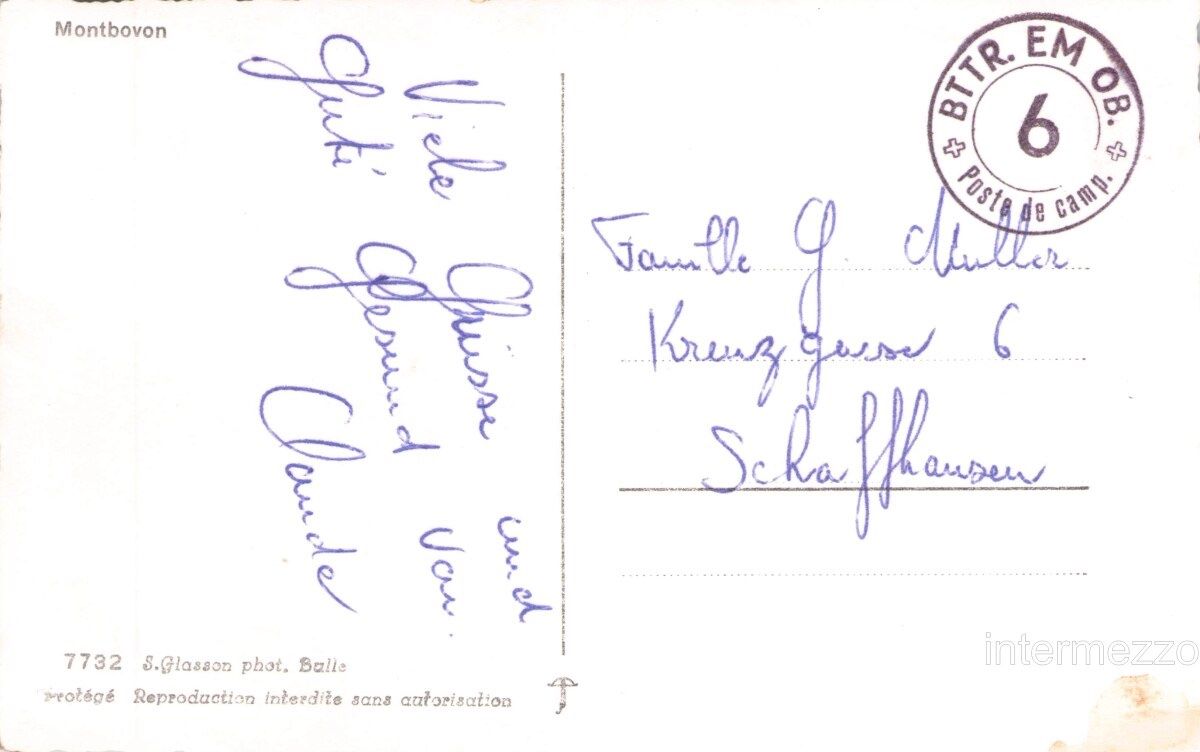 Montbovon
Viele Grüsse und
Guti Gesund von
Claude
7732 S. Glasson phot. Bulle
Protégé Reproduction interdite sans autorisation
BTTR. EM OB.
6
Poste de camp.
Famille G. Muller
Kreuzgasse 6
Schaffhausen
intermezzo